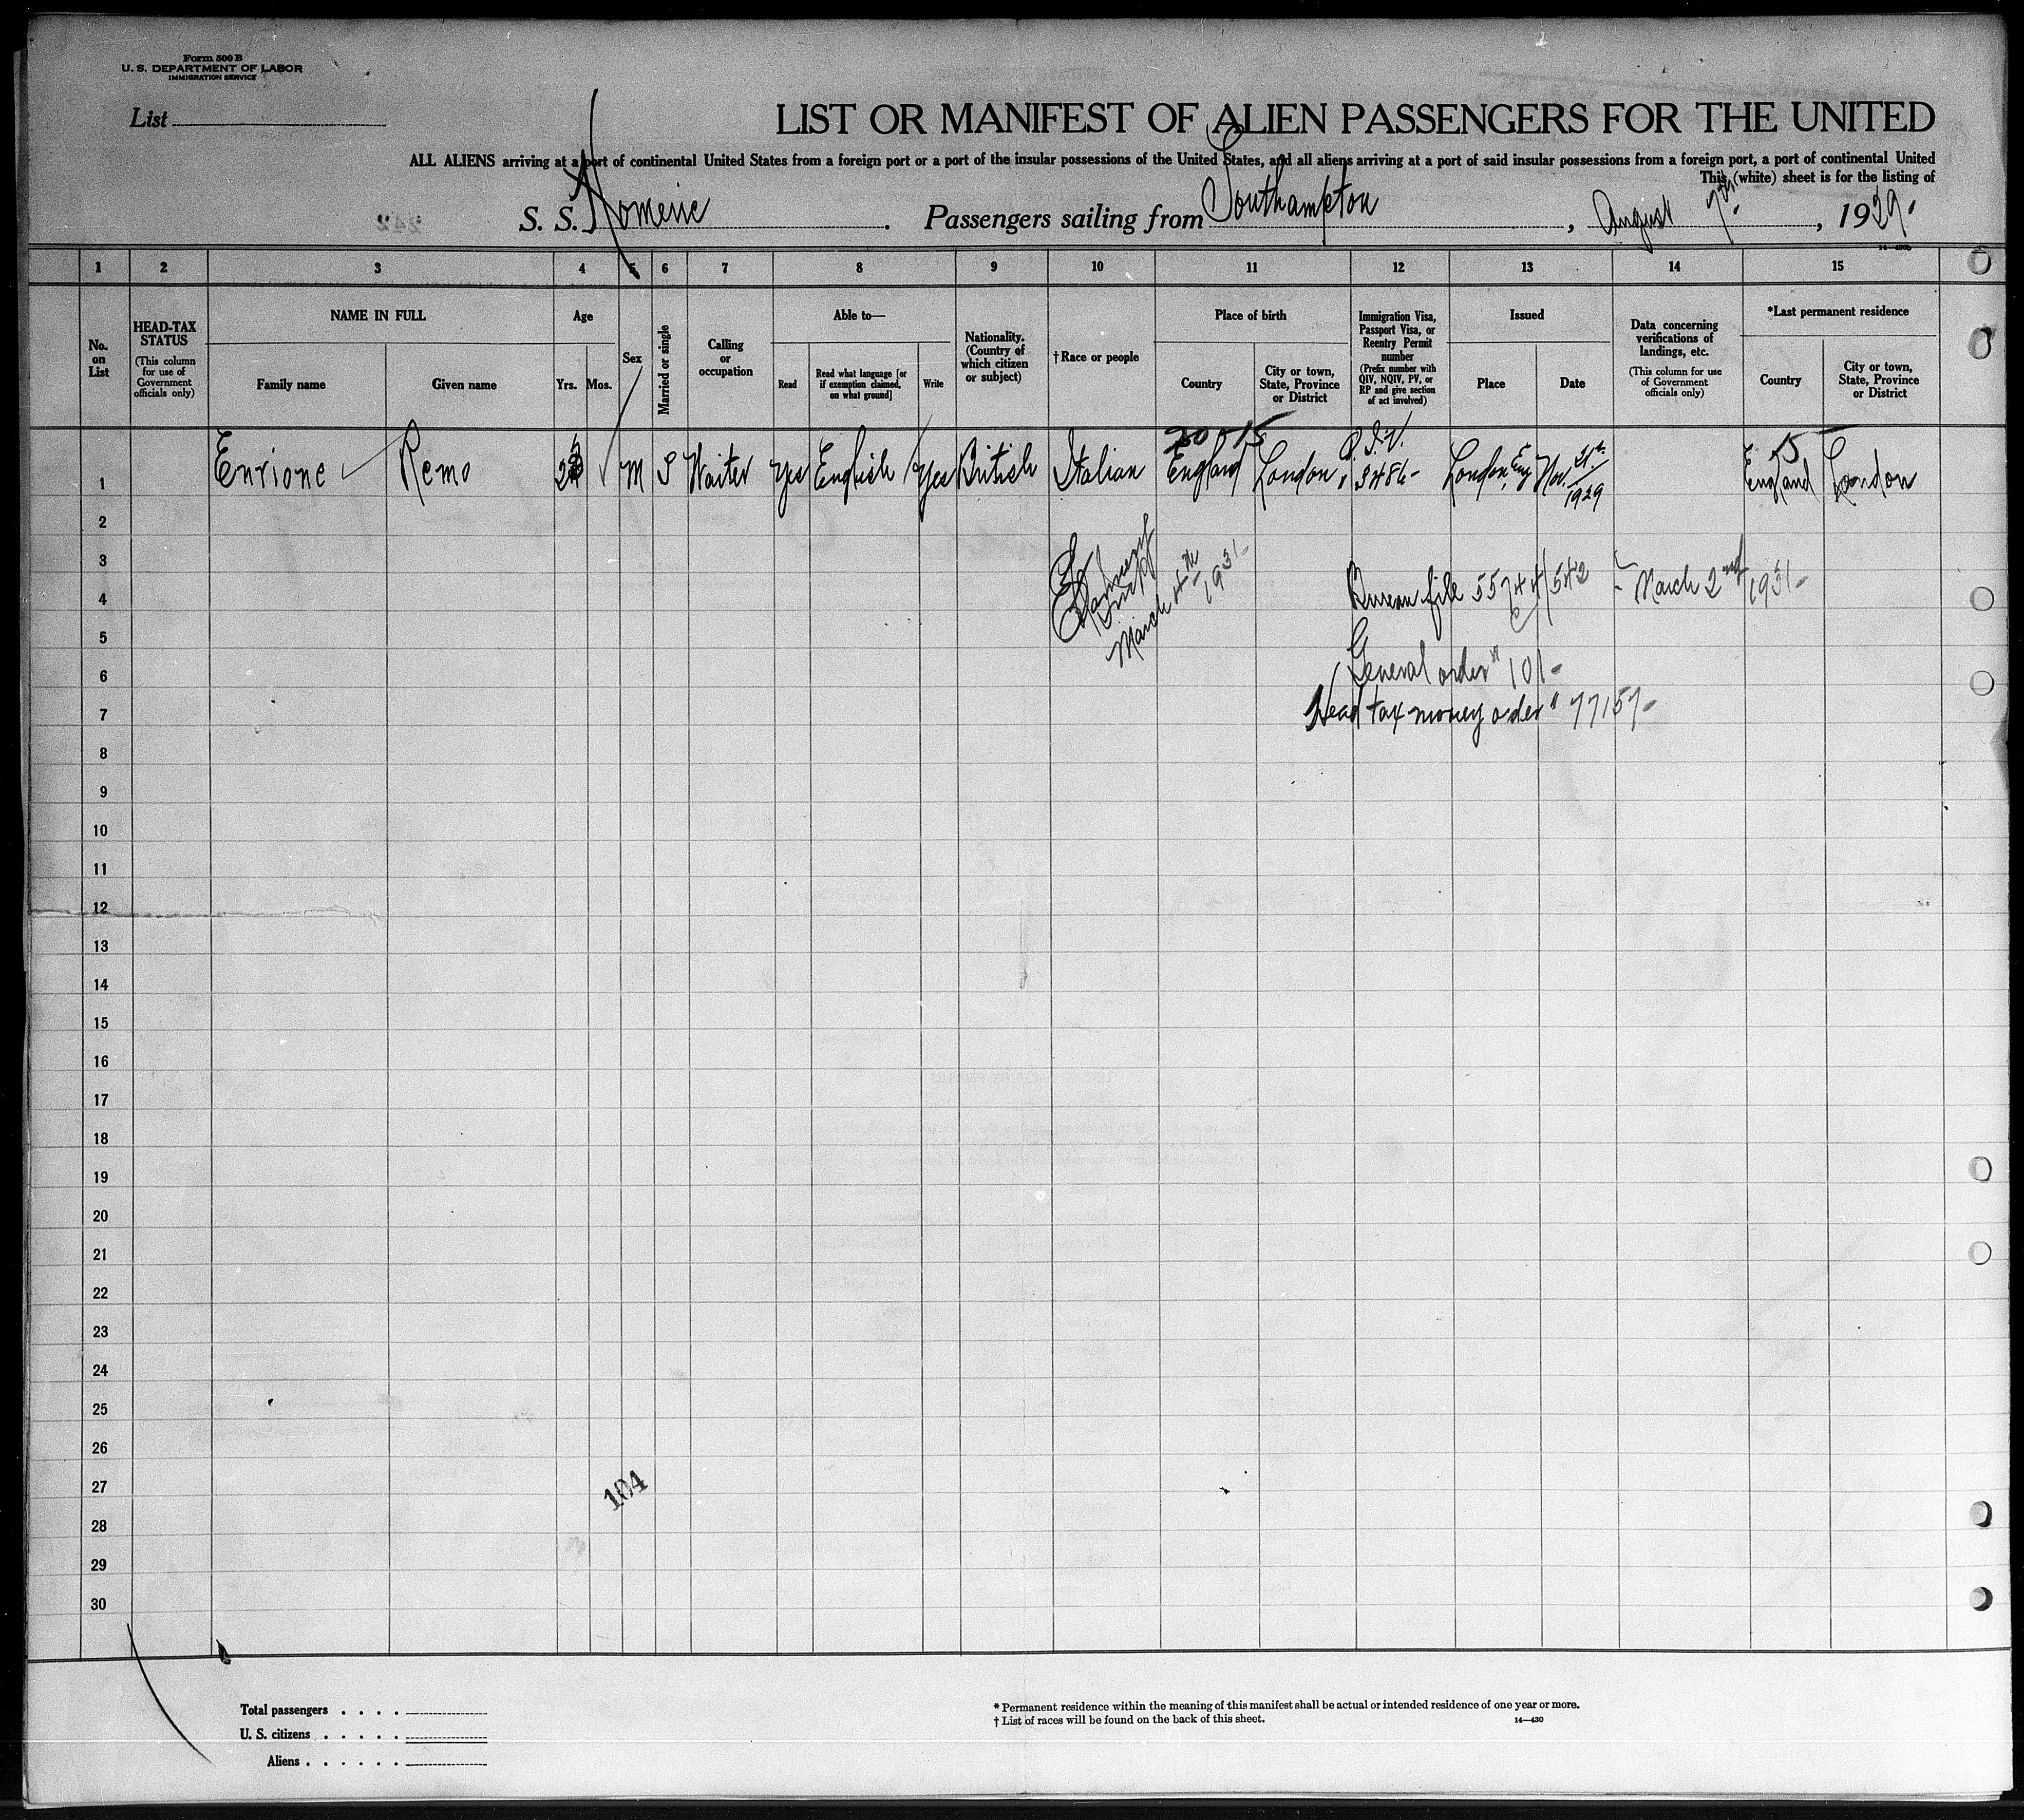 Form 500 B
U. S. DEPARTMENT OF LABOR
IMMIGRATION SERVICE
List
LIST OR MANIFEST OF ALIEN PASSENGERS FOR THE UNITED
ALL ALIENS arriving at a port of continental United States from a foreign port or a port of the insular possessions of the United States, and all aliens arriving at a port of said insular possessions from a foreign port, a port of continental United
This (white) sheet is for the listing of
S. S. Homeric. Passengers sailing from Southampton, August 7th, 1929.
1 2 3 4 5 6 7 8 9 10 11 12 13 14 15
No. on List
HEAD-TAX STATUS (This column for use of Government officials only)
NAME IN FULL
Family name
Given name
Age
Yrs. Mos.
Sex
Married or single
Calling or occupation
Able to—
Read
Read what language [or if exemption claimed, on what ground]
Write
Nationality. (Country of which citizen or subject)
†Race or people
Place of birth
Country
City or town, State, Province or District
Immigration Visa, Passport Visa, or Reentry Permit number (Prefix number with QIV, NQIV, PV, or RP and give section of act involved)
Issued
Place
Date
Data concerning verifications of landings, etc. (This column for use of Government officials only)
*Last permanent residence
Country
City or town, State, Province or District
1 Enrione Remo M S Waiter Yes English Yes British Italian England London Q.I.V. 3486- London, Eng Nov. 21st 1929 England London
20 15
15
2
3
4
5
6
7
8
9
10
11
12
13
14
15
16
17
18
19
20
21
22
23
24
25
26
27
28
29
30
March 4th 1931-
Bureau file 55744/542 - March 2nd 1931-
General order " 101-
Head tax money order " 77157-
104
Total passengers . . . .
U. S. citizens . . . . .
Aliens . . . . . .
* Permanent residence within the meaning of this manifest shall be actual or intended residence of one year or more.
† List of races will be found on the back of this sheet.
14—430